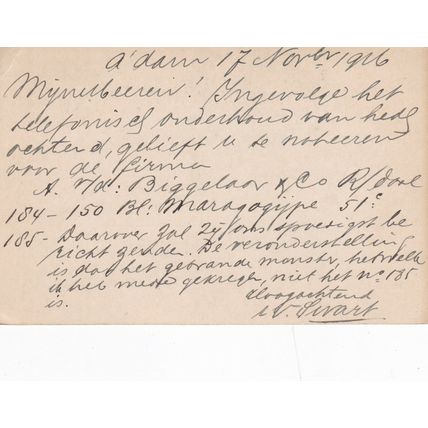 A'dam 17 Novbr 1916
Mijne Heeren! Ingevolge het
telefonisch onderhoud van heden
ochtend, gelieft u te noteeren
voor de firma
A. v/d. Biggelaar & Co R/daal
184 - 150 Bl: Maragogype 51 c
185 - Daarover zal zij ons spoedigst be
richt zenden. De veronderstelling
is dat het gebrande monster, hetwelk
ik heb mede gekregen, niet het no 185
is.
Hoogachtend
W. Swart